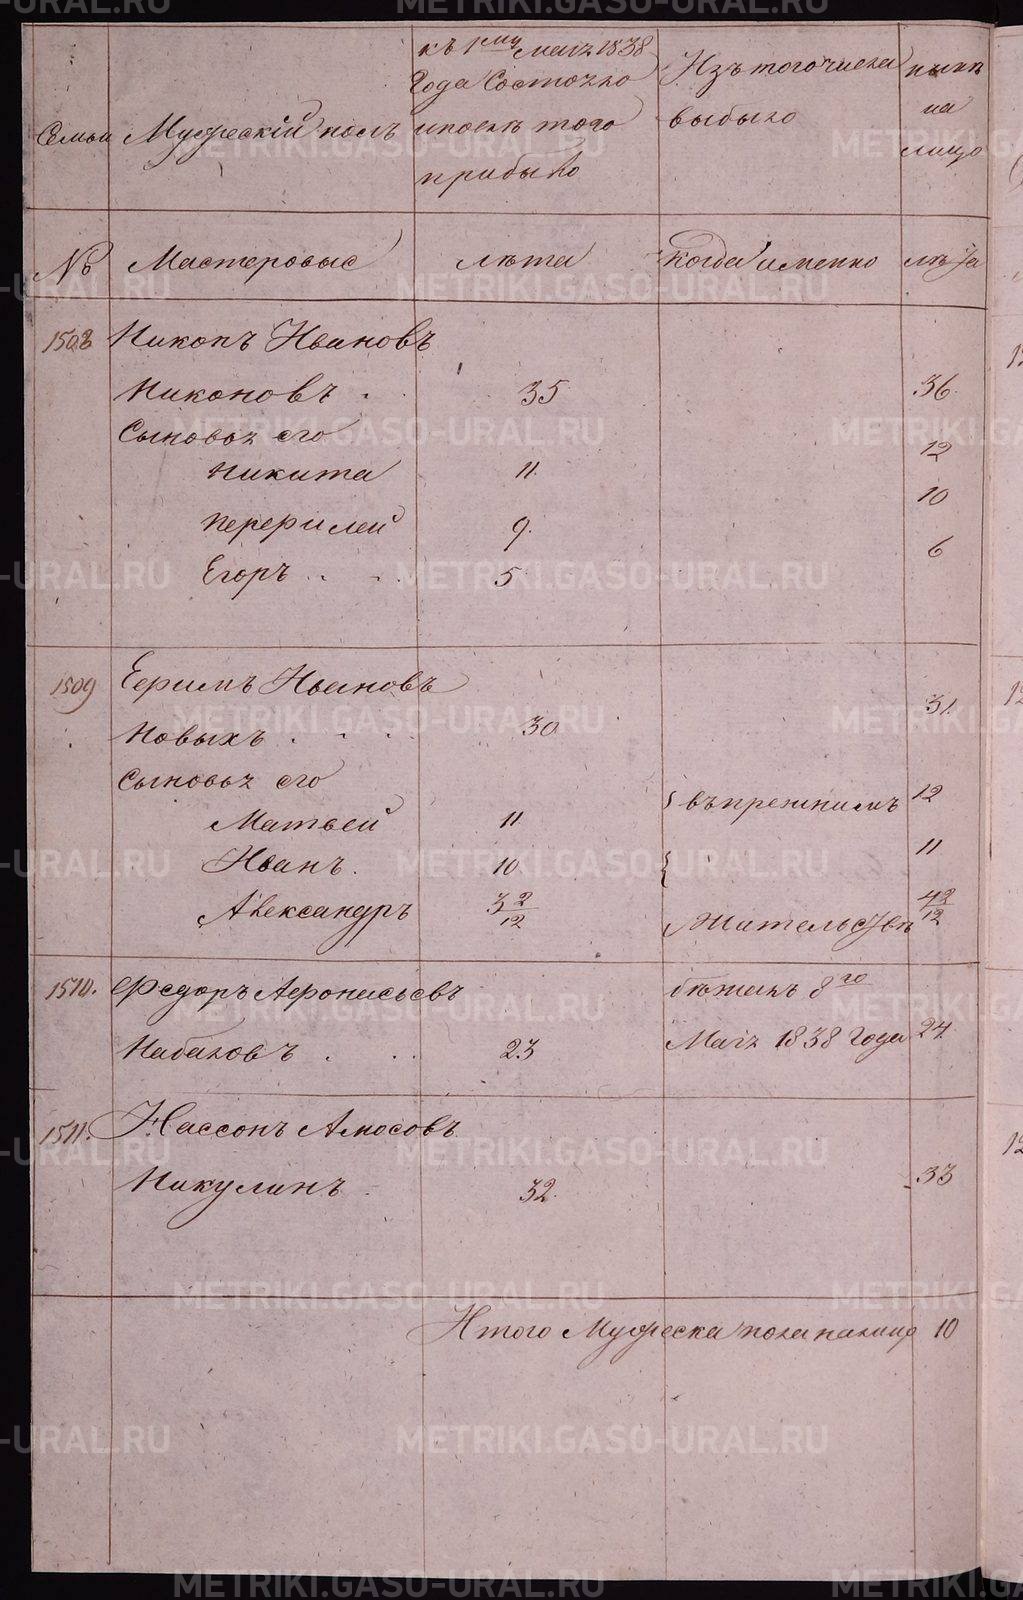 Семьи
Мужескiй полъ
къ 1му маiя 1838
Года Состояло
и после того
прибыло
Изъ того числа
выбыло
ныне
на
лицо
№
Мастеровые
лѣта
когда именно
лѣта
1508
Никонъ Ивановъ
Никоновъ . . 35 36.
Сыновья его
Никита 11. 12
Перфилей 9. 10
Егоръ . . 5. 6
1509
Ефимъ Ивановъ
Новыхъ . . . 30 31.
Сыновья его
Матвей 11 въ прежнимъ 12
Иванъ. 10 11
Александръ 3 2/12 Жительствѣ 4 2/12
1510. Федоръ Афонасьевъ бѣжалъ 8го
Набаловъ . . . 23 Маiя 1838 Года 24.
1511. Нассонъ Амосовъ
Никулинъ . 32. 33
Итого Мужеска пола налицо 10
METRIKI.GASO-URAL.RU